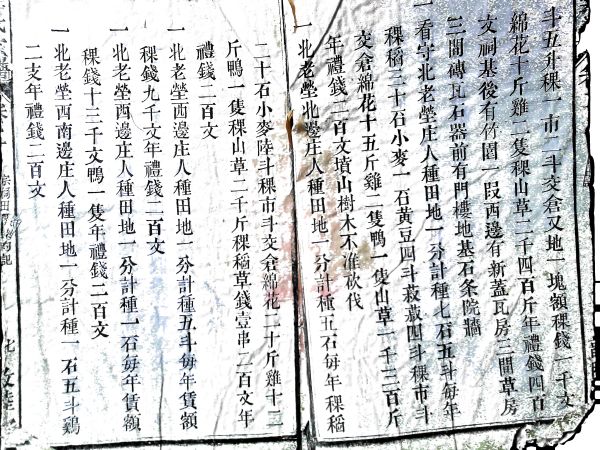 斗五升稞一市一斗交倉又地一塊額稞錢一千文
綿花十斤雞二隻稞山草二千四百斤年禮錢四百
文祠基後有竹園一段西邊有新蓋瓦房三間草房
三間磚瓦石器前有門樓地基石条院牆
一看守北老塋庄人種田地一分計種七石五斗每年
稞稻三十石小麥一石黃豆四斗菽菽四斗稞市斗
交倉綿花十五斤雞二隻鴨一隻山草一千三百斤
年禮錢二百文墳山樹木不准砍伐
一北老塋北邊庄人種田地一分計種五石每年稞稻
二十石小麥陸斗稞市斗交倉綿花二十斤雞十二
斤鴨一隻稞山草二千斤稞稻草錢壹串二百文年
禮錢二百文
一北老塋西邊庄人種田地一分計種五斗每年賃額
稞錢九千文年禮錢二百文
一北老塋西邊庄人種田地一分計種一石每年賃額
稞錢十三千文鴨一隻年禮錢二百文
一北老塋西南邊庄人種田地一分計種一石五斗鷄
二支年禮錢二百文